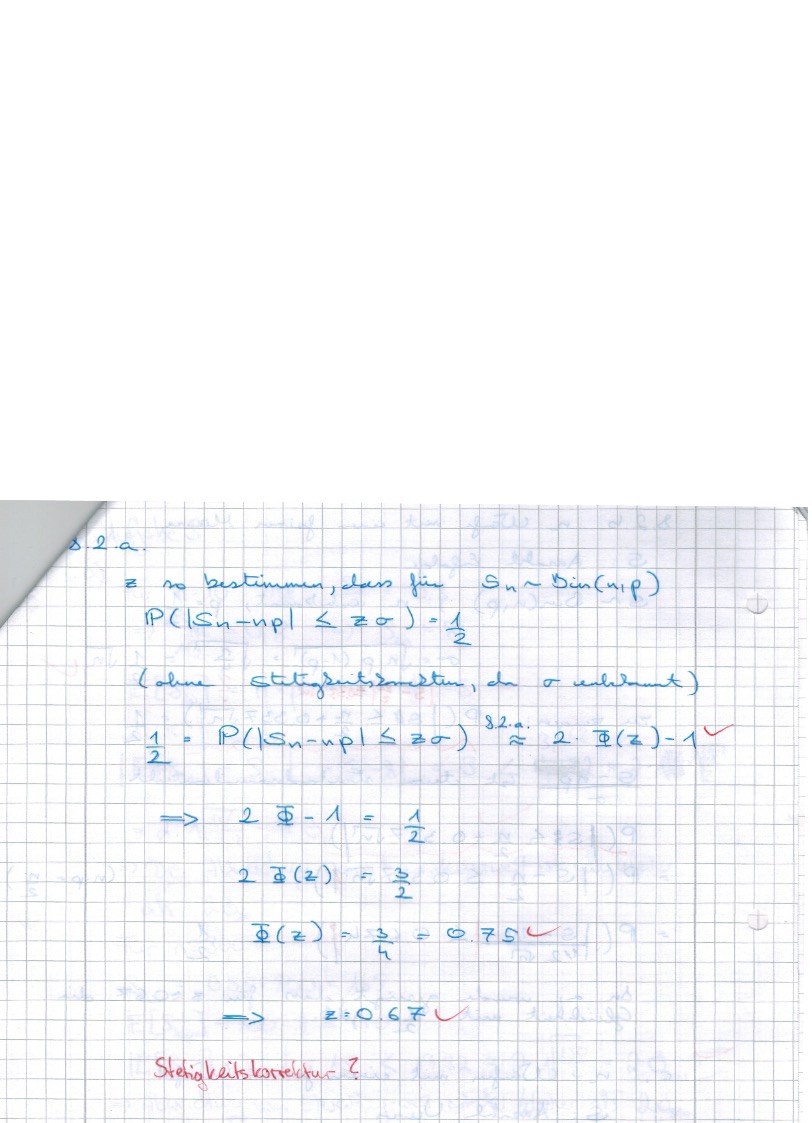 8.2.a.
z so bestimmen, dass für Sn ~ Bin(n,p)
P(|Sn-np| ≤ zσ) = 1/2
(ohne Stetigkeitskorrektur, da σ unbekannt)
1/2 = P(|Sn-np| ≤ zσ) ≈ 8.2.a. 2·Φ(z)-1 ✓
⟹ 2 Φ - 1 = 1/2
2 Φ(z) = 3/2
Φ(z) = 3/4 = 0.75 ✓
⟹ z=0.67 ✓
Stetigkeitskorrektur ?